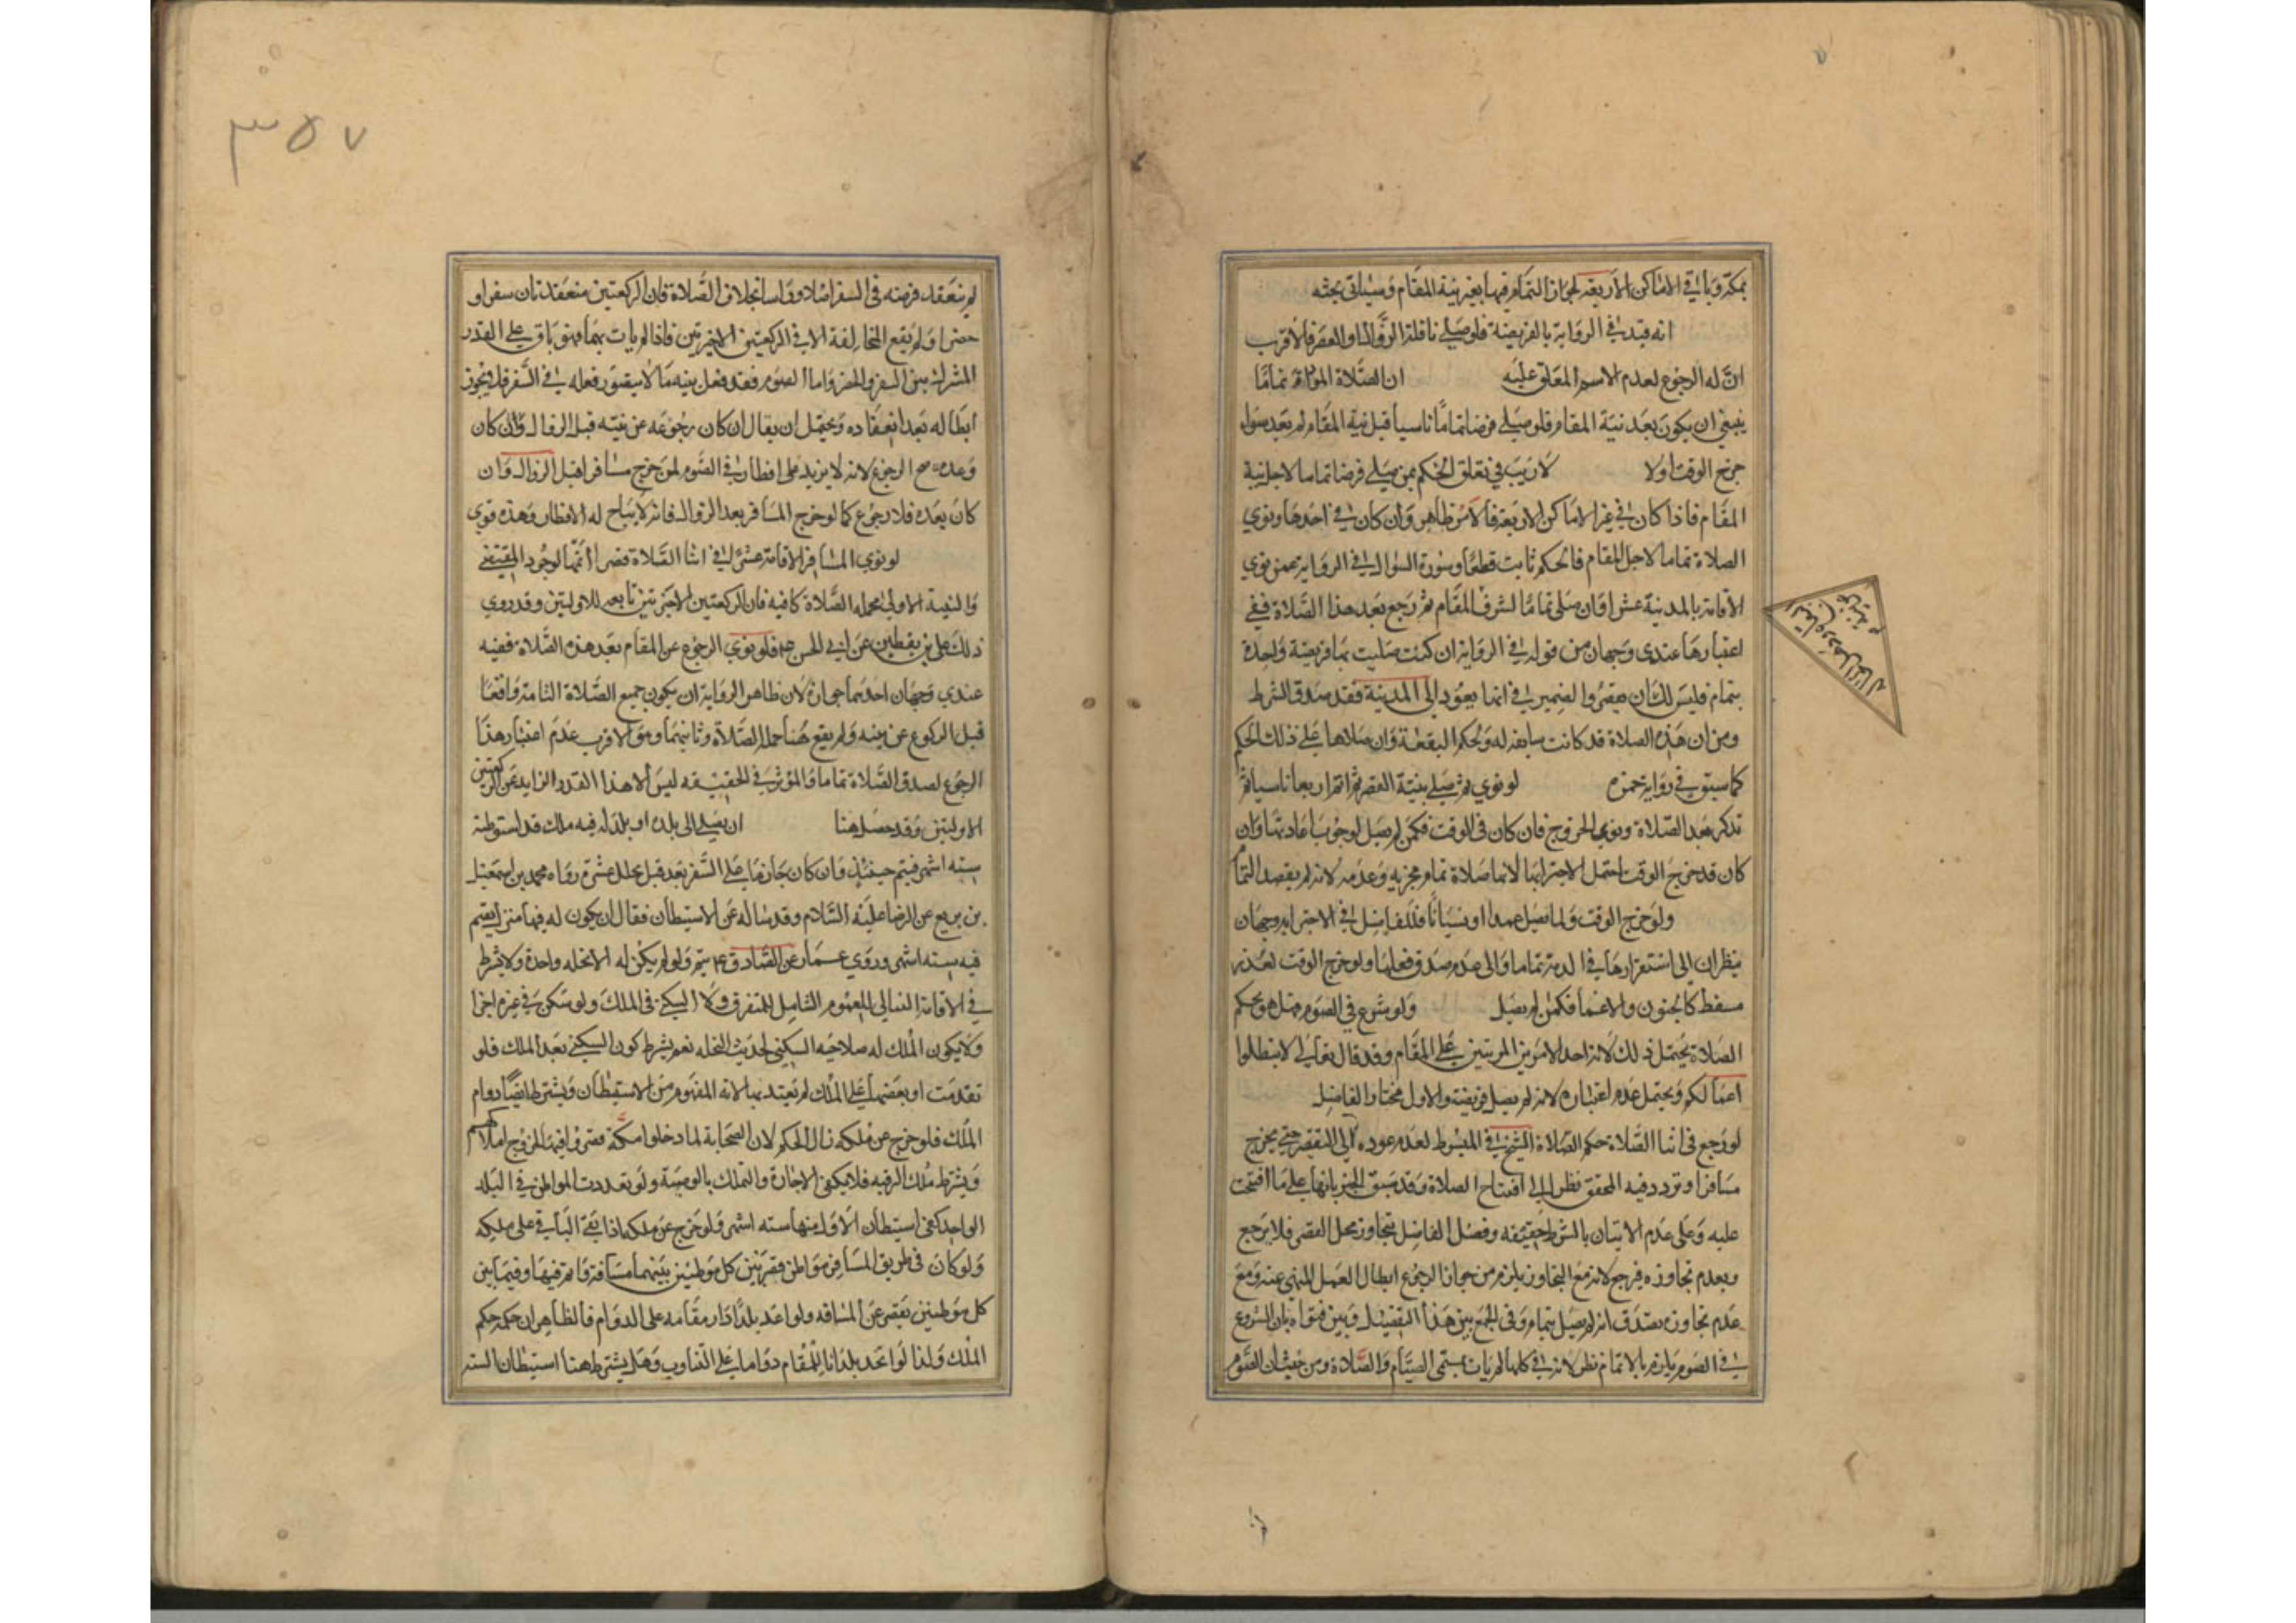 بمكة وباقي الاماكن الاربعة لجواز التمام فيها بغير نية المقام وسياتي بحثه
انه قيد في الرواية بالفريضة فلو صلى نافلة الزوال او العصر فالاقرب
ان له الرجوع لعدم الاسم المعلق عليه ان الصلاة المؤداة تماما
ينبغي ان يكون بعد نية المقام فلو صلى فرضا تماما ناسيا قبل نية المقام لم يعتد سواء
خرج الوقت اولا لا ريب في تعلق الحكم بمن صلى فرضا تماما لاجل نية
المقام فاذا كان في غير الاماكن الاربعة فالامر ظاهر وان كان في احدها ونوى
الصلاة تماما لاجل المقام فالحكم ثابت قطعا وصورة السؤال في الرواية عمن نوى
الاقامة بالمدينة عشرا وان صلى تماما لشرف المقام ثم رجع بعد هذا الصلاة ففي
اعتبارها عندي وجهان من قوله في الرواية ان كنت صليت بها فريضة واحدة
بتمام فليس لك ان تقصر والضمير في انما يعود الى المدينة فقد صدق الشرط
ومن ان هذه الصلاة قد كانت سايغة له بحكم البقعة وان صلاها على ذلك الحكم
كما سبق في رواية حمزه لو نوى ثم صلى بنية القصر ثم اتم اربعا ناسيا ثم
تذكر بعد الصلاة ونوى الخروج فان كان في الوقت فكمن لم يصل لوجوب اعادتها وان
كان قد خرج الوقت احتمل الاجتزا بها لانها صلاة تمام مجزيه وعدمه لانه لم يقصد التمام
ولو خرج الوقت ولما يصل عمدا او نسيانا فللفاضل في الاجتزا به وجهان
ينظران الى استقرارها في الذمة تماما والى عدم صدق فعلها ولو خرج الوقت لعذر
مسقط كالجنون والاغما فكمن لم يصل ولو شرع في الصوم فهل هو بحكم
الصلاة يحتمل ذلك لانه احد الامرين المرتبين على المقام وقد قال تعالى لا تبطلوا
اعمالكم ويحتمل عدم اعتباره لانه لم يصل فريضة والاول مختار الفاضل
لو رجع في اثنا الصلاة حكم الصلاة الشيخ في المبسوط لعدم عوده الى التقصير حتى يخرج
مسافرا وتردد فيه المحقق نظرا الى افتتاح الصلاة وقد سبق الخبر بانها على ما افتتحت
عليه وعلى عدم الاتيان بالشرط حقيقة وفصل الفاضل بتجاوز محل القصر فلا يرجع
وبعدم تجاوزه فيرجع لانه مع التجاوز يلزم من جواز الرجوع ابطال العمل المنهي عنه ومع
عدم تجاوزه يصدق انه لم يصل بتمام وفي الجمع بين هذا التفصيل وبين فتواه بان الشروع
في الصوم يلزم بالاتمام نظر لانه في كلها لم يات بمسمى الصيام والصلاة ومن حيث ان الصوم
٣٥٧
لم ينعقد فرضه في السفر اصلا وراسا بخلاف الصلاة فان الركعتين منعقدتان سفرا و
حضرا ولم يقع المخالفة الا في الركعتين الاخيرتين فاذا لم يات بهما فهو باق على القدر
المشترك بين السفر والحضر واما الصوم فقد فعل منه ما لا يتصور فعله في السفر فلا يجوز
ابطاله بعد انعقاده ويحتمل ان يقال ان كان رجوعه عن نيته قبل الزوال وان كان
وعدمه صح الرجوع لانه لا يزيد على افطار في الصوم لمن خرج مسافرا قبل الزوال وان
كان بعده فلا رجوع كما لو خرج المسافر بعد الزوال فانه لا يباح له الافطار وهذه قوي
لو نوى المسافر الاقامة عشرا في اثنا الصلاة قصرا اتمها لوجود المقتضي
والنية الاولى بجملة الصلاة كافية فان الركعتين الاخيرتين تابعه للاوليتين وقد روى
ذلك علي بن يقطين عن ابي الحسن ع فلو نوى الرجوع عن المقام بعد هذه الصلاة ففيه
عندي وجهان احدهما جوازه لان ظاهر الرواية ان يكون جميع الصلاة التامة واقعا
قبل الركوع عن نيته ولم يقع هنا جملة الصلاة وثانيهما وهو الاقرب عدم اعتبار هذا
الرجوع لصدق الصلاة تماما والمؤثر في الحقيقه ليس الا هذا القدر الزايد عن الركعتين
الاوليتين وقد حصل هنا ان يصل الى بلده او بلد له فيه ملك قد استوطنه
سته اشهر فيتم حينئذ وان كان جازما على السفر بعد قبل تخلل عشرة رواه محمد بن اسمعيل
بن بزيع عن الرضا عليه السلام وقد ساله عن الاستيطان فقال ان يكون له فيها منزل يقيم
فيه سته اشهر وروى عمار عن الصادق ع يتم ولو لم يكن له الا نخله واحدة ولا يشترط
في الاقامة التوالي للعموم الشامل للمتفرق ولا السكنى في الملك ولو سكن في غيره اجزا
ولا يكون الملك له صلاحيه السكنى لحديث النخله نعم يشترط كون السكنى بعد الملك فلو
تقدمت او بعضها على الملك لم يعتد بها لانه المفهوم من الاستيطان ويشترط ايضا دوام
الملك فلو خرج عن ملكه زال الحكم لان الصحابة لما دخلوا مكة قصروا فيها لخروج املاكهم
ويشترط ملك الرقبه فلا يكفي الاجارة والتملك بالوصية ولو تعددت المواطن في البلد
الواحد كفى استيطان الاول منها سته اشهر ولو خرج عن ملكه اذا بقي الباقي على ملكه
ولو كان في طريق المسافر مواطن فقربين كل موطنين بينهما مسافة واتم فيها وفيما بين
كل موطنين تقصر عن المسافه ولو اعد بلدا دار مقامه على الدوام فالظاهر ان حكمه حكم
الملك ولذا لو اتخذ بلدانا للمقام دواما على التناوب وهل يشترط هنا استيطان الستة